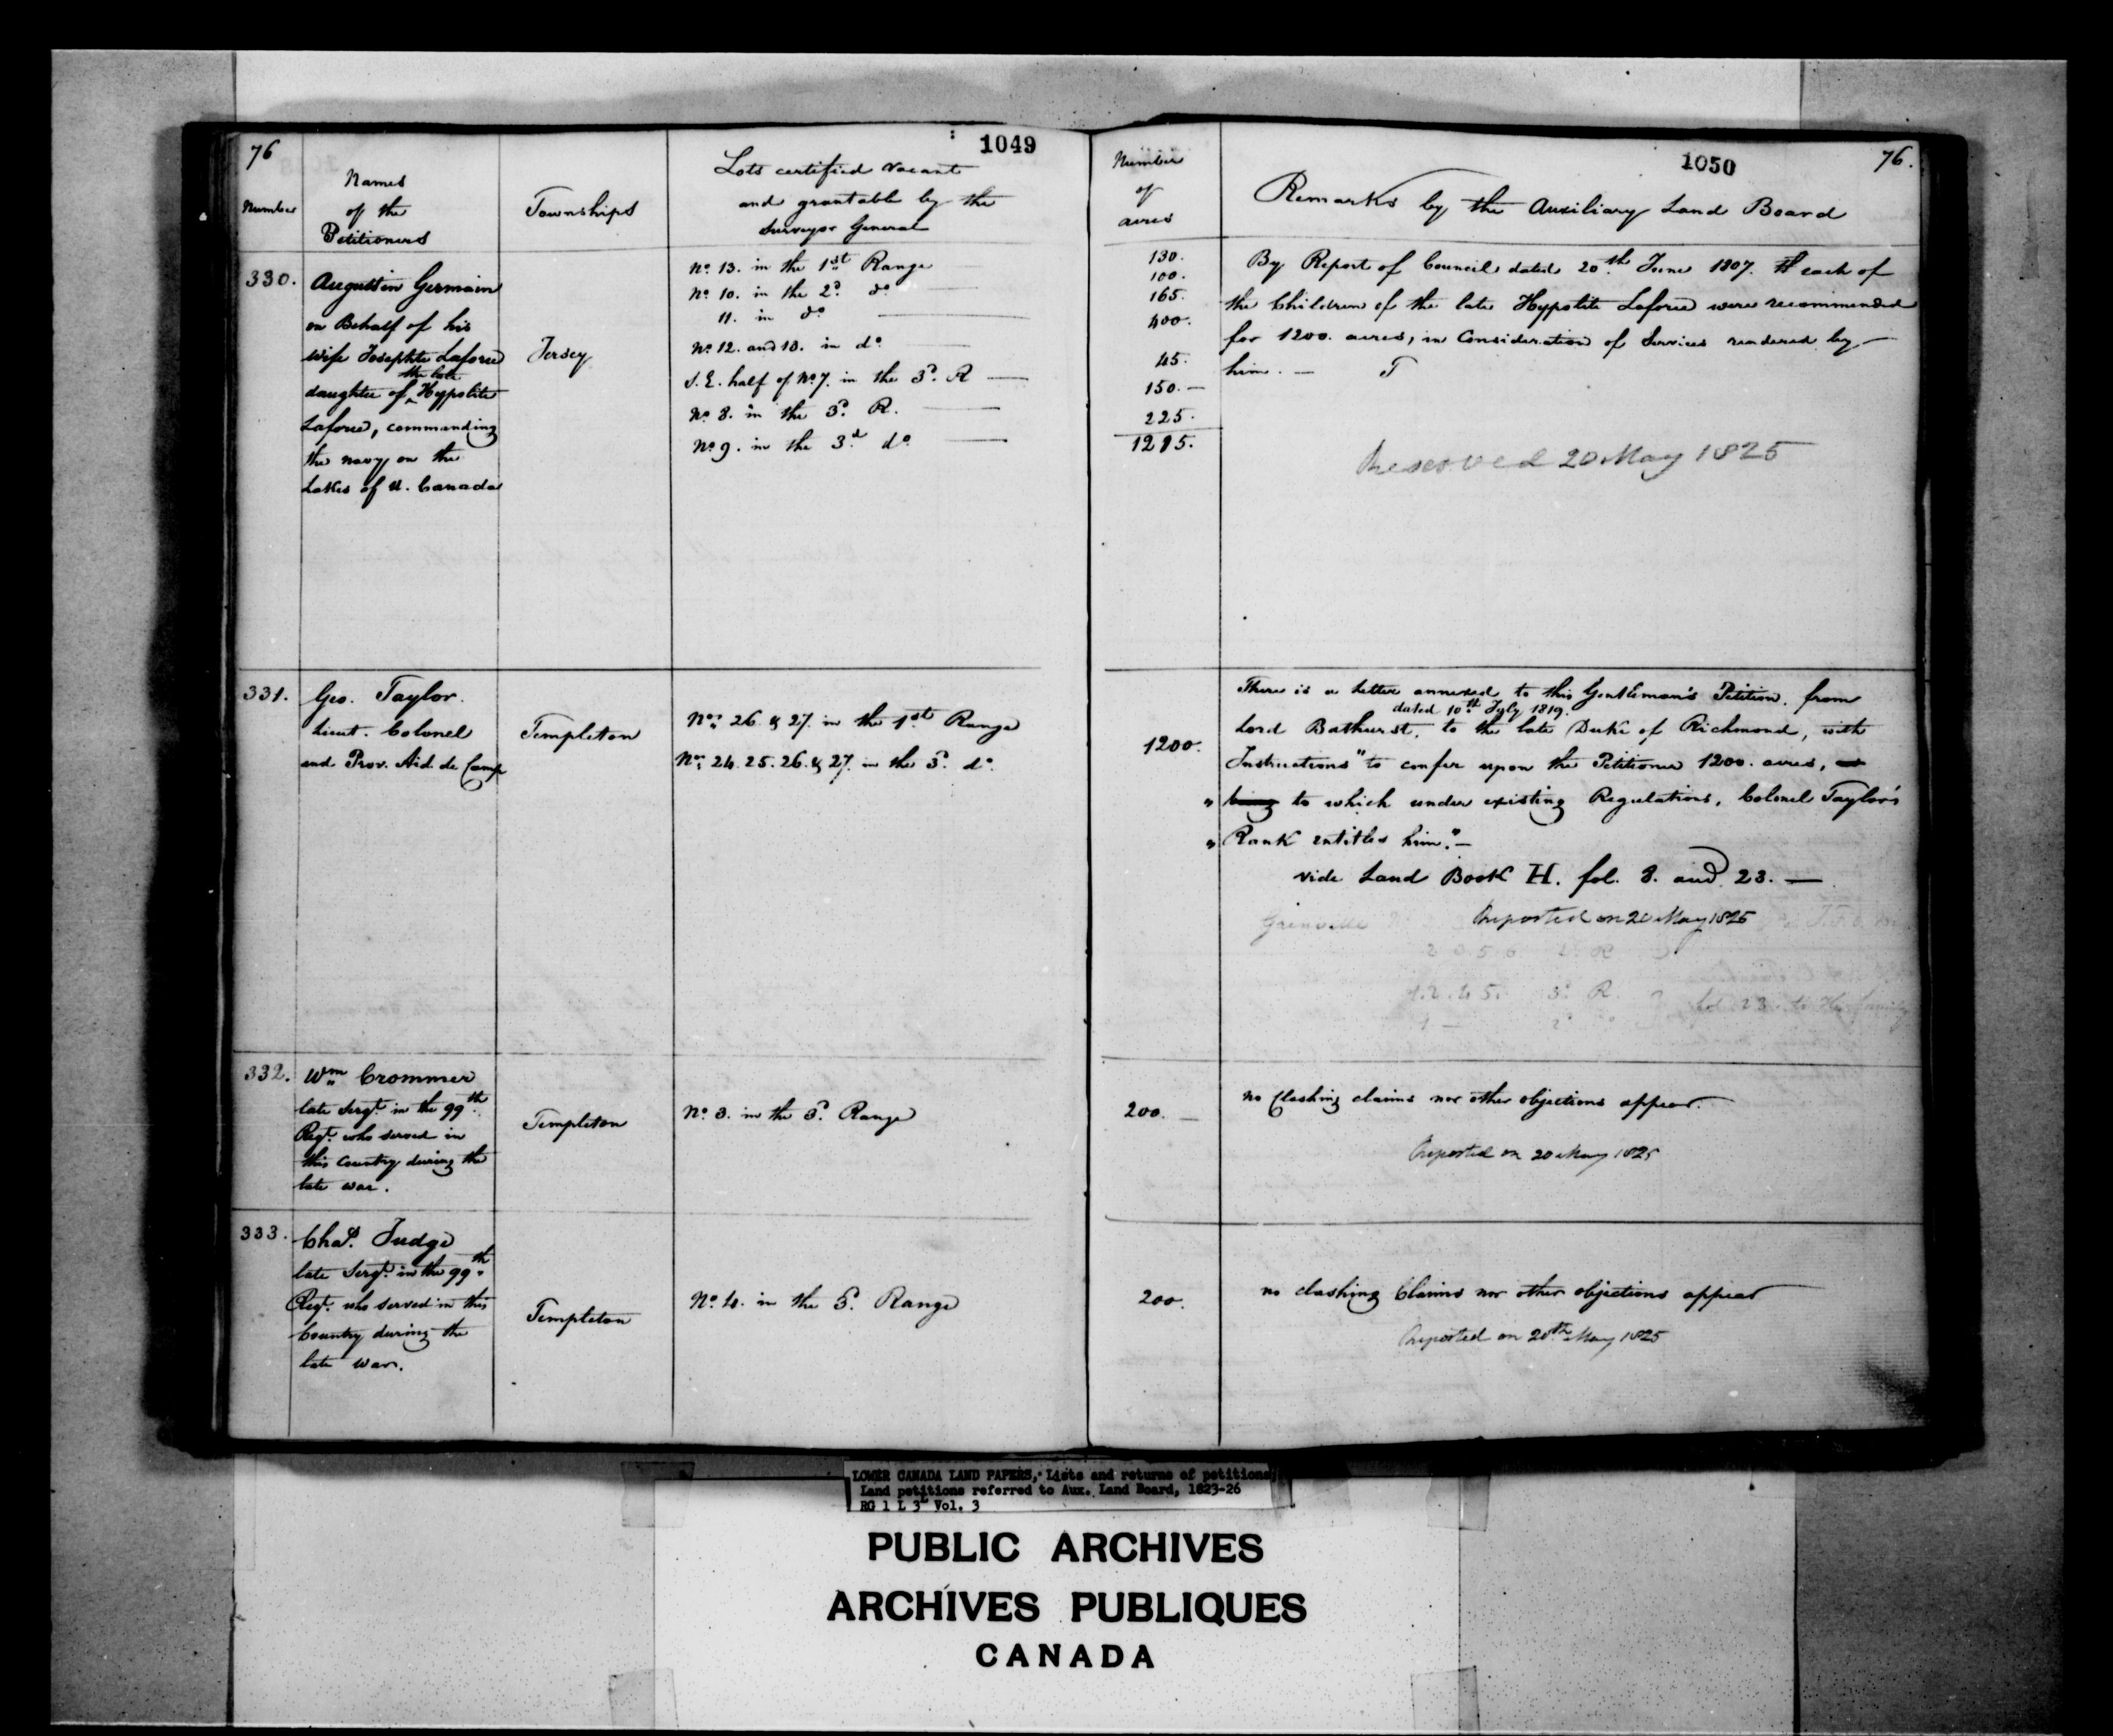 76
1049
Number
Names
of the
Petitioners
Townships
Lots certified vacant
and grantable by the
Surveyor General
330.
Augustin Germain
on Behalf of his
wife Josephte Laforce
the late
daughter of ^ Hypolite
Laforce, commanding
the navy on the
Lakes of U. Canada
Jersey
No. 13. in the 1st Range
No. 10. in the 2d. do.
11. in do.
No. 12. and 13. in do.
S.E. half of No. 7. in the 3d. R
No. 8. in the 3d. R.
No. 9. in the 3d do.
331.
Geo. Taylor.
Lieut. Colonel
and Prov. Aid de Camp
Templeton
Nos. 26 & 27. in the 1st Range
Nos. 24. 25. 26. & 27. in the 3d. do.
332.
Wm. Crommer
late Sergt. in the 99th.
Regt. who served in
this Country during the
late war.
Templeton
No. 3. in the 3d. Range
333.
Chas. Judge
late Sergt. in the 99th.
Regt. who served in this
Country during the
late war.
Templeton
No. 4. in the 3d. Range
1050
76.
Number
of
acres
Remarks by the Auxiliary Land Board
130.
100.
165.
400.
45.
150.
225.
1215.
By Report of Council dated 20th. June 1807. each of
the Children of the late Hypolite Laforce were recommended
for 1200. acres, in Consideration of Services rendered by
him. —
Reserved 20 May 1825
1200.
There is a letter annexed to this Gentleman's Petition. from
dated 10th July 1819.
Lord Bathurst. to the late Duke of Richmond, with
Instructions "to confer upon the Petitioner 1200. acres,
" being to which under existing Regulations, Colonel Taylor's
" Rank entitles him." —
vide Land Book H. fol. 8. and 23. —
Reported on 20 May 1825
Grenville
3d. R.
fol. 23. to His family
200. —
no Clashing claims nor other objections appear.
Reported on 20 May 1825
200.
no clashing Claims nor other objections appear
Reported on 20th May 1825
LOWER CANADA LAND PAPERS, Lists and returns of petitions,
Land petitions referred to Aux. Land Board, 1823-26
RG 1 L 3L Vol. 3
PUBLIC ARCHIVES
ARCHIVES PUBLIQUES
CANADA